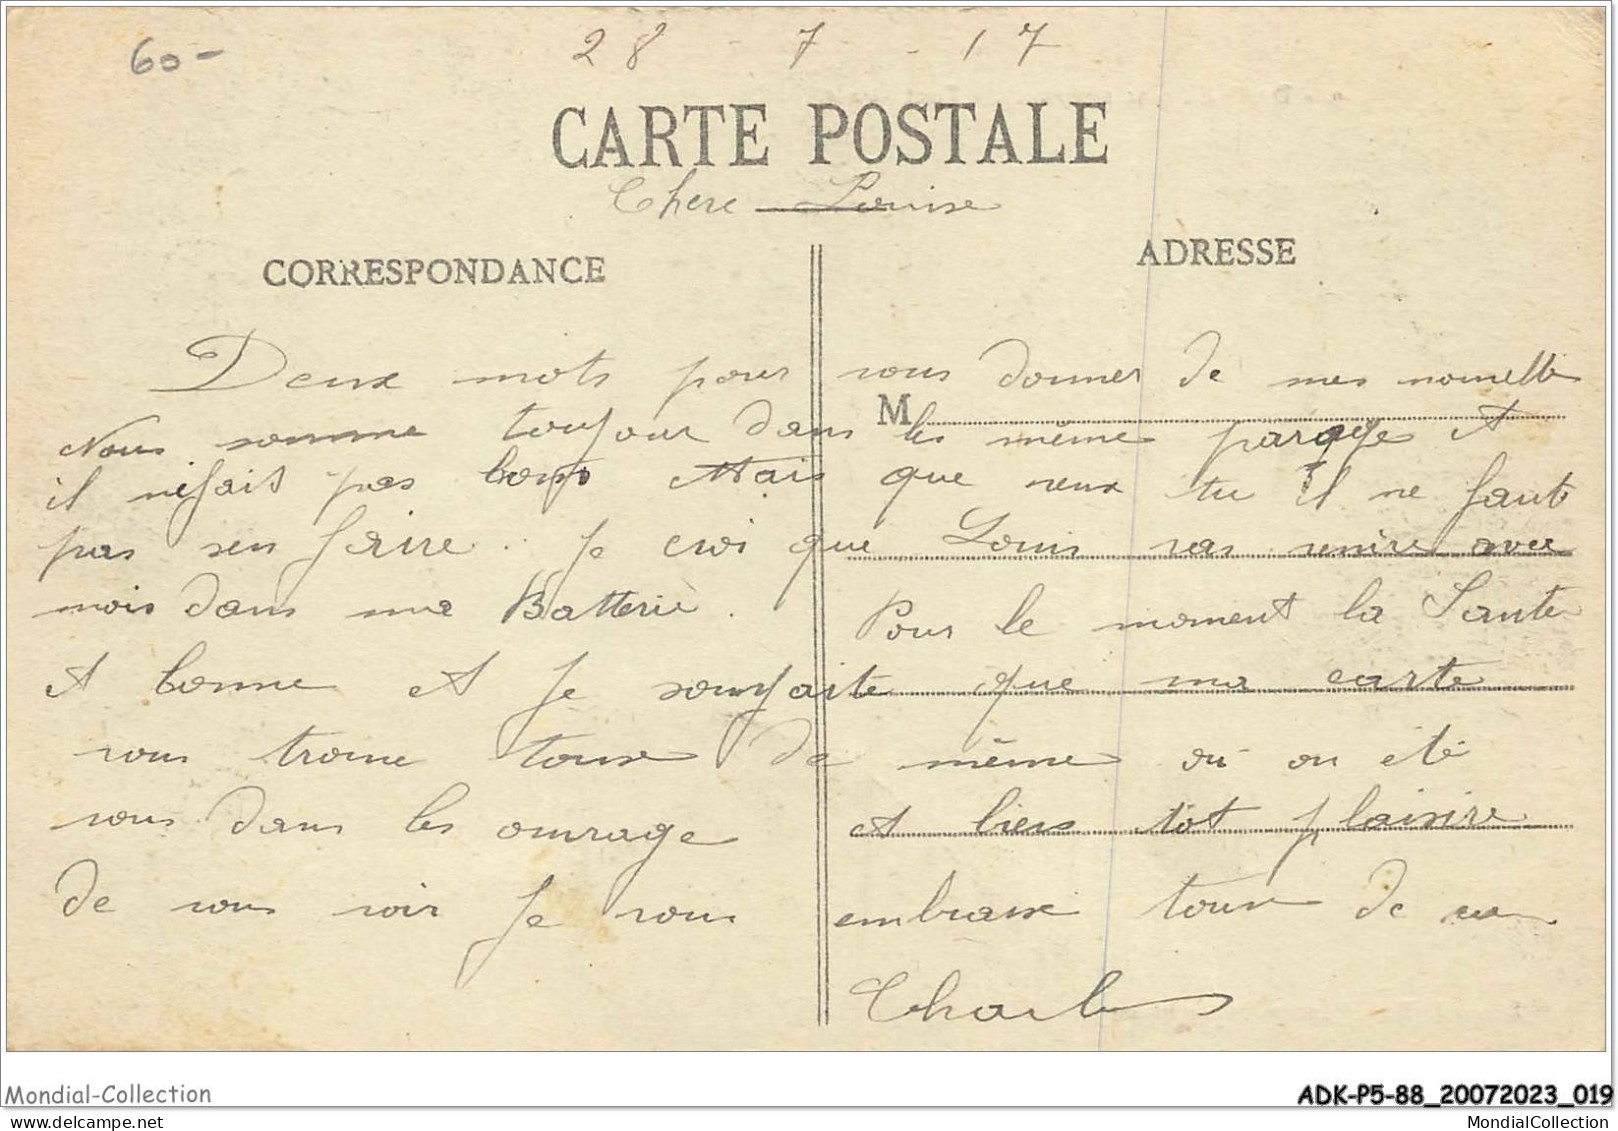 60-
28 - 7 - 17
CARTE POSTALE
Chere Louise
CORRESPONDANCE
ADRESSE
M
Deux mots pour vous donner de mes nouvelles
Nous somme toujour dans les même parage et
il ne fait pas bons Mais que veux tu il ne faut
pas sen faire. Je croi que Louis vas venire avec
mois dans ma Batterie. Pour le moment la Sante
et bonne et Je souhaite que ma carte
vous trouve tous de même où on été
vous dans les ouvrage et bien tôt plaisire
de vous voir Je vous embrasse tous de
Charles
Mondial-Collection
ADK-P5-88_20072023_019
www.delcampe.net
MondialCollection